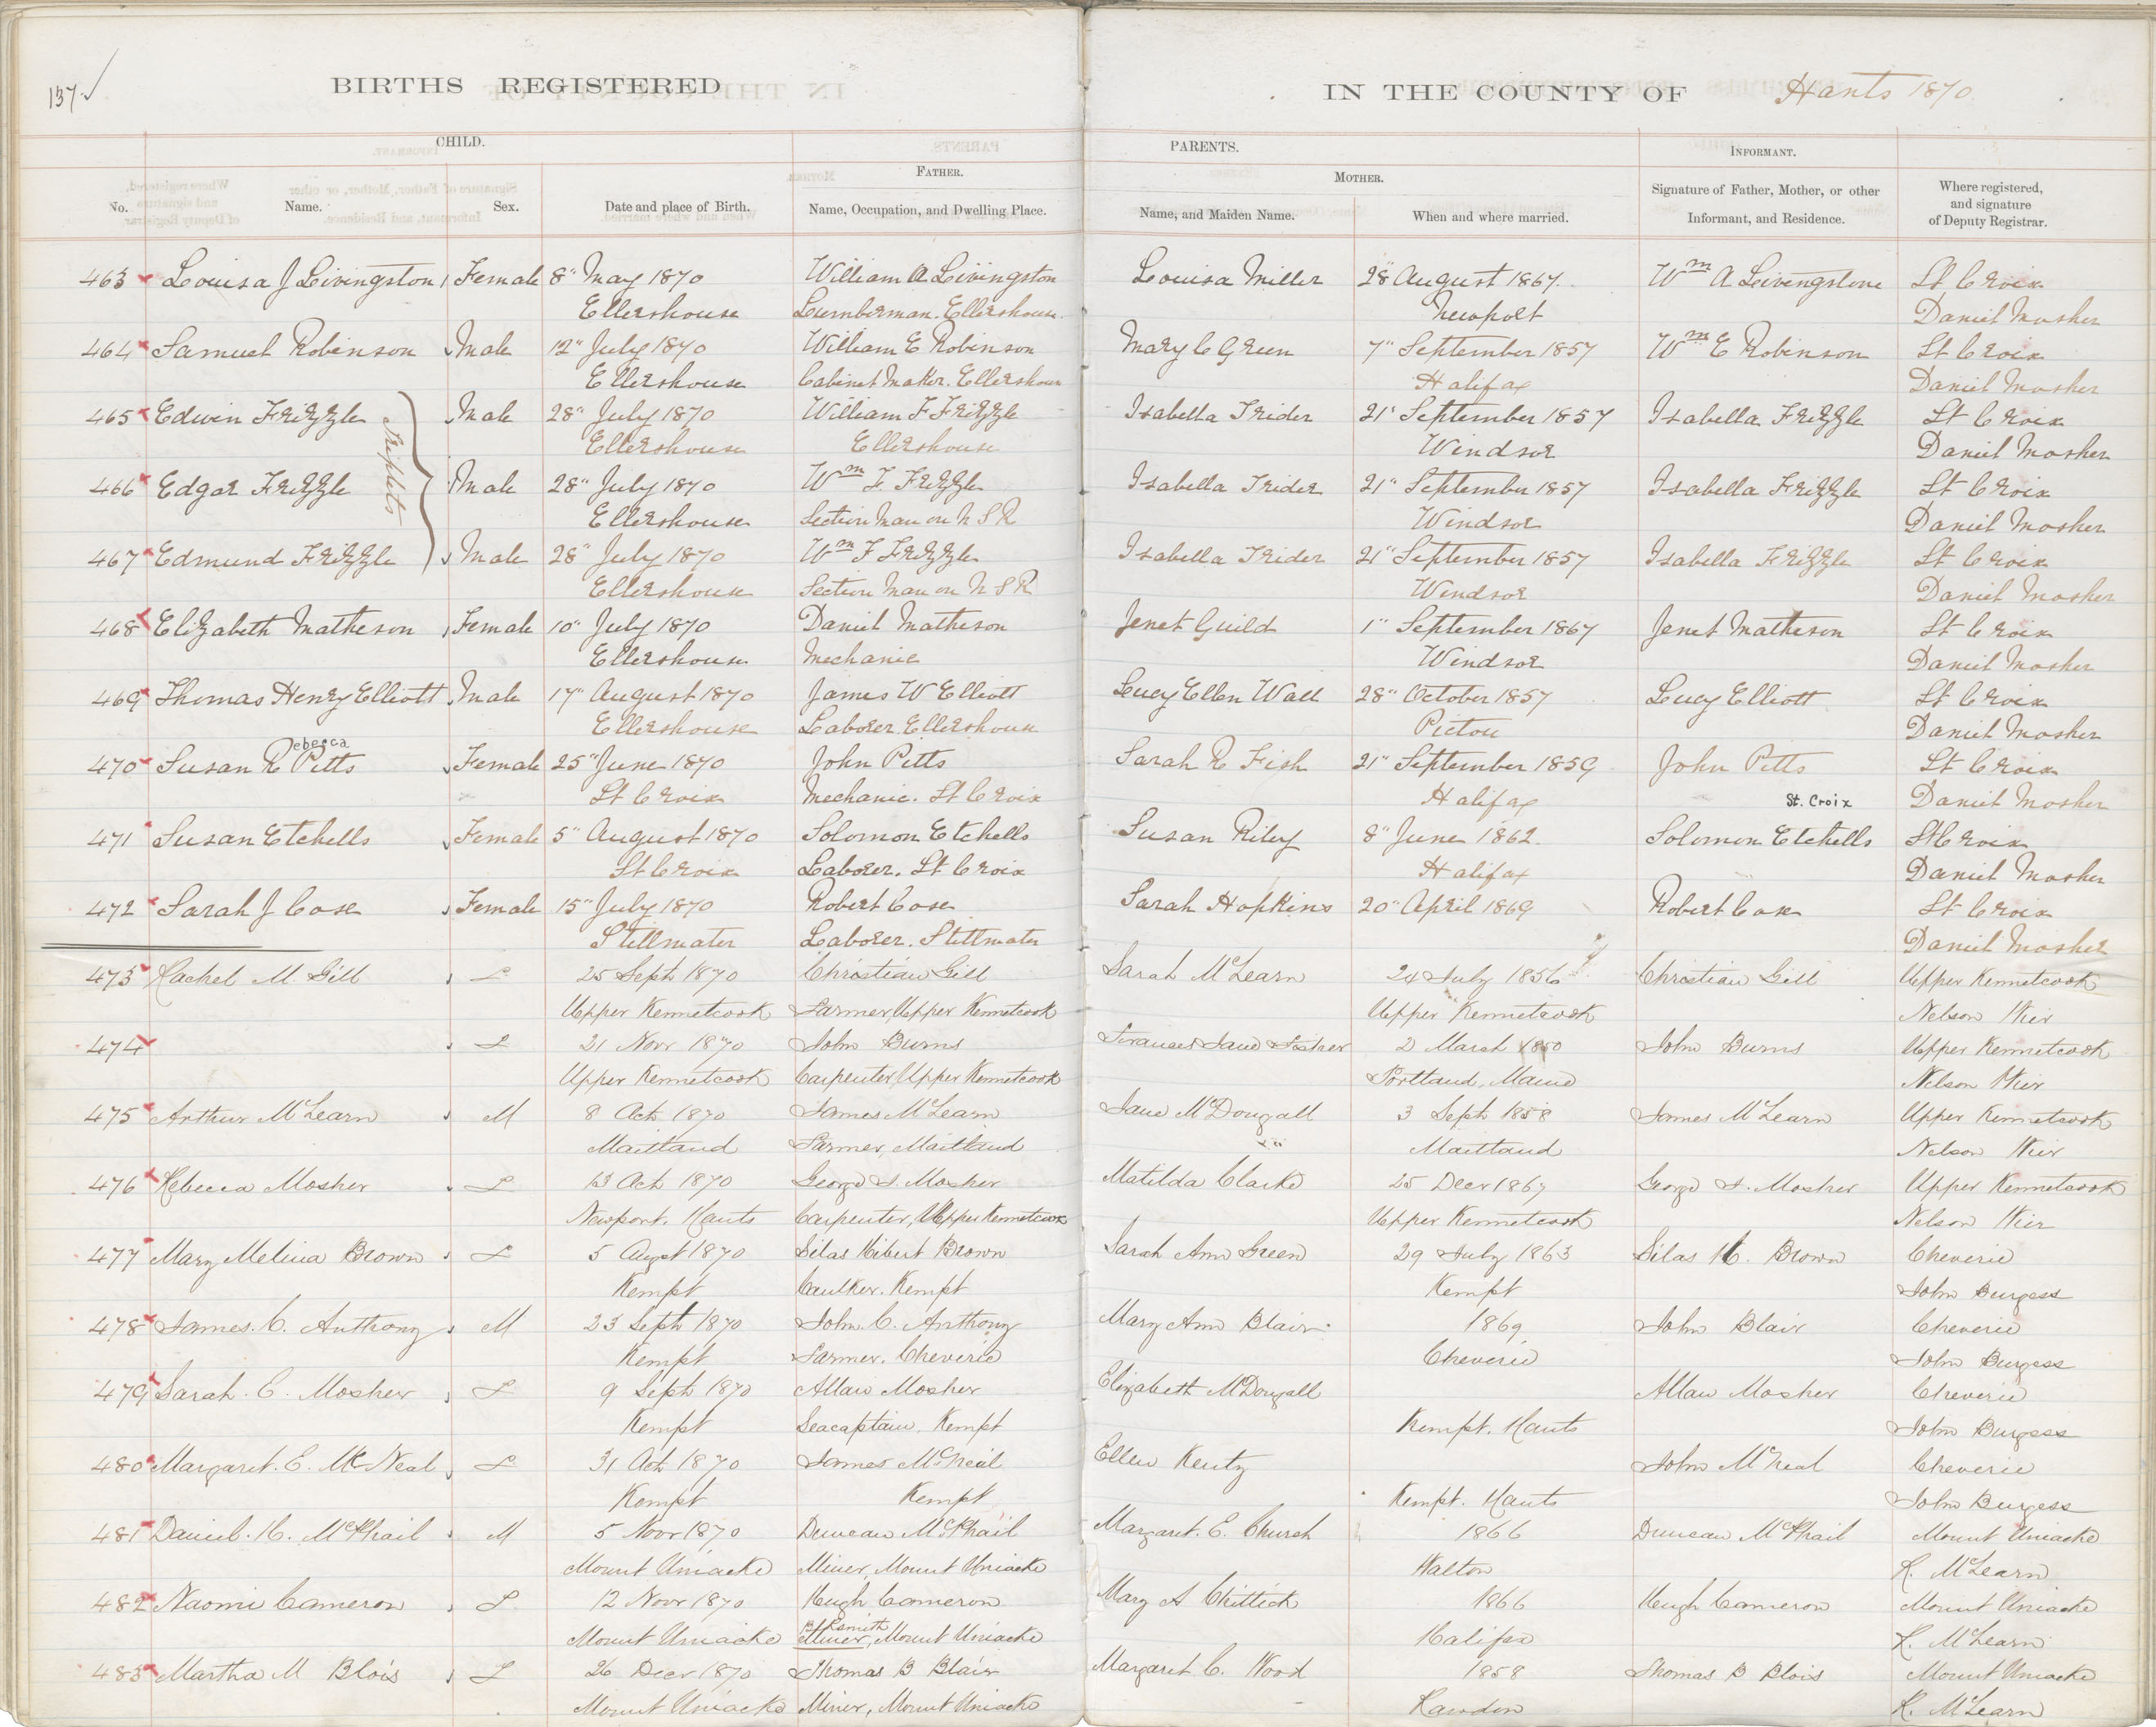 137 ✓
BIRTHS REGISTERED IN THE COUNTY OF Hants 1870.
CHILD. PARENTS. INFORMANT.
FATHER. MOTHER.
No. Name. Sex. Date and place of Birth. Name, Occupation, and Dwelling Place. Name, and Maiden Name. When and where married. Signature of Father, Mother, or other Informant, and Residence. Where registered, and signature of Deputy Registrar.
463 Louisa J Livingston Female 8" May 1870 William A Livingston Louisa Miller 28" August 1867. Wm A Livingstone St Croix
Ellershouse Lumberman. Ellershouse. Newport Daniel Mosher
464 Samuel Robinson Male 12" July 1870 William E Robinson Mary C Green 7" September 1857 Wm E Robinson St Croix
Ellershouse Cabinet Maker. Ellershouse Halifax Daniel Mosher
465 Edwin Frizzle Male 28" July 1870 William F Frizzle Isabella Trider 21" September 1857 Isabella Frizzle St Croix
Triplets
Ellershouse Ellershouse Windsor Daniel Mosher
466 Edgar Frizzle Male 28" July 1870 Wm F. Frizzle Isabella Trider 21" September 1857 Isabella Frizzle St Croix
Ellershouse Section Man on N S R Windsor Daniel Mosher
467 Edmund Frizzle Male 28" July 1870 Wm F Frizzle Isabella Trider 21" September 1857 Isabella Frizzle St Croix
Ellershouse Section Man on N S R Windsor Daniel Mosher
468 Elizabeth Matheson Female 10" July 1870 Daniel Matheson Jenet Guild 1" September 1867 Jenet Matheson St Croix
Ellershouse Mechanic Windsor Daniel Mosher
469 Thomas Henry Elliott Male 17" August 1870 James W Elliott Lucy Ellen Wall 28" October 1857 Lucy Elliott St Croix
Ellershouse Laborer Ellershouse Pictou Daniel Mosher
ebecca
470 Susan R Pitts Female 25" June 1870 John Pitts Sarah R Fish 21" September 1859 John Pitts St Croix
St Croix Mechanic. St Croix Halifax St. Croix Daniel Mosher
471 Susan Etchells Female 5" August 1870 Solomon Etchells Susan Riley 8" June 1862. Solomon Etchells St Croix
St Croix Laborer. St Croix Halifax Daniel Mosher
472 Sarah J Cose Female 15" July 1870 Robert Cose Sarah Hopkins 20" April 1869 Robert Cose St Croix
Stillwater Laborer. Stillwater Daniel Mosher
473 Rachel M. Gill F 25 Sept 1870 Christian Gill Sarah McLearn 24 July 1856 Christian Gill Upper Kennetcook
Upper Kennetcook Farmer, Upper Kennetcook Upper Kennetcook Nelson Wier
474 F 21 Novr 1870 John Burns Frances Jane 2 March 1850 John Burns Upper Kennetcook
Upper Kennetcook Carpenter, Upper Kennetcook Portland, Maine Nelson Wier
475 Arthur McLearn M 8 Oct 1870 James McLearn Jane McDougall 3 Sept 1858 James McLearn Upper Kennetcook
Maitland Farmer, Maitland Maitland Nelson Wier
476 Rebecca Mosher F 13 Oct 1870 George S. Mosher Matilda Clarke 25 Decr 1867 George S. Mosher Upper Kennetcook
Newport. Hants Carpenter, Upper Kennetcook Upper Kennetcook Nelson Wier
477 Mary Melina Brown F 5 Augst 1870 Silas Hibert Brown Sarah Ann Green 29 July 1863 Silas H. Brown Cheverie
Kempt Caulker. Kempt Kempt John Burgess
478 James. C. Anthony M 23 Sept 1870 John. C. Anthony Mary Ann Blair 1869 John Blair Cheverie
Kempt Farmer. Cheverie Cheverie John Burgess
479 Sarah. E. Mosher F 9 Sept 1870 Allan Mosher Elizabeth McDougall Allan Mosher Cheverie
Kempt Seacaptain. Kempt Kempt. Hants John Burgess
480 Margaret. E. McNeal F 31 Oct 1870 James McNeil Ellen Kentz John McNeal Cheverie
Kempt Kempt Kempt. Hants John Burgess
481 Daniel. H. McPhail M 5 Novr 1870 Duncan McPhail Margaret. E. Church 1866 Duncan McPhail Mount Uniacke
Mount Uniacke Miner, Mount Uniacke Walton R. McLearn
482 Naomi Cameron F 12 Novr 1870 Hugh Cameron Mary A Chittick 1866 Hugh Cameron Mount Uniacke
Mount Uniacke Miner, Mount Uniacke Halifax R. McLearn
483 Martha M Blois F 26 Decr 1870 Thomas B Blair Margaret C. Wood 1858 Thomas B Blois Mount Uniacke
Mount Uniacke Miner, Mount Uniacke Rawdon R. McLearn